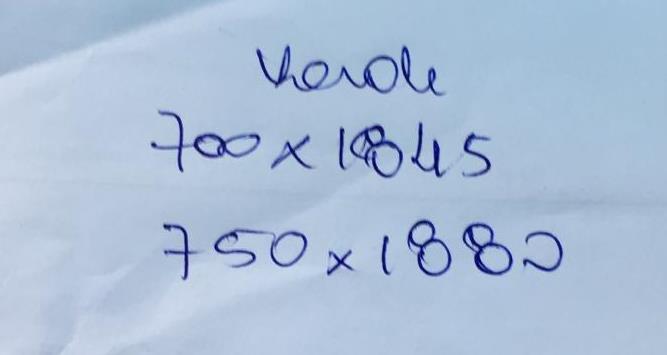 Verde
700x1845
750x1880